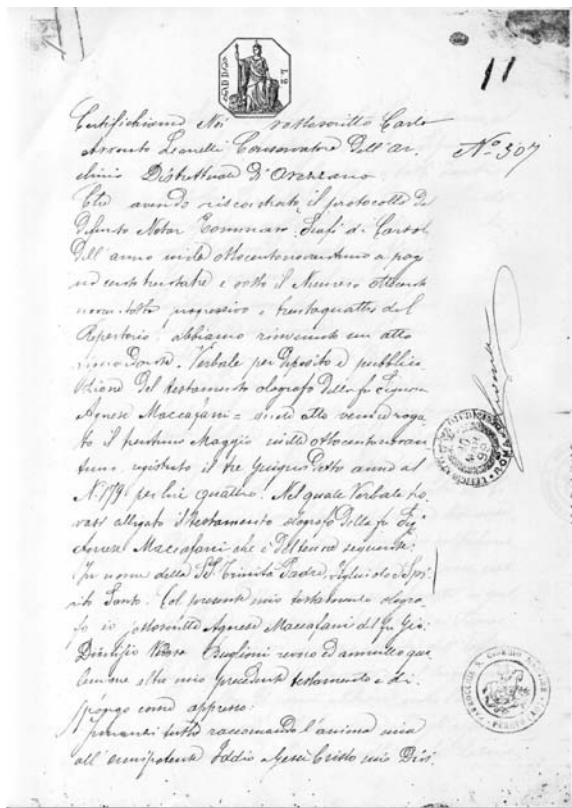 11
Certifichiamo Noi sottoscritto Carlo
Leonelli Conservatore Dell'Ar.
chivio Distrettuale D'Avezzano
Nº 307
Che avendo riscontrato il protocollo del
defunto Notar Tommaso di
Dell'anno mille ottocentonovantuno a pag
e sotto il Numero ottocento
progressivo e trentaquattro del
Repertorio abbiamo rinvenuto un atto
Verbale per deposito e pubblica
zione Del testamento olografo Della fu Signora
Agnese Maccafani = quale atto venne roga
to il Maggio mille ottocentonovan
tuno, registrato il tre Giugno detto anno al
Nº 179 per lire quattro. Nel quale Verbale tro
vasi alligato il testamento olografo Della fu Sig
Agnese Maccafani che è Del tenore seguente:
In nome della SS. Trinità Padre, Figliuolo e Spi
rito Santo. Col presente mio testamento ologra
fo io sottoscritta Agnese Maccafani del fu Gio.
Dionisio Buglioni revoco ed annullo qua
lunque altro mio precedente testamento e di.
spongo come appresso:
tutto raccomando l'anima mia
all'onnipotente Iddio Gesù Cristo mio
ROMA